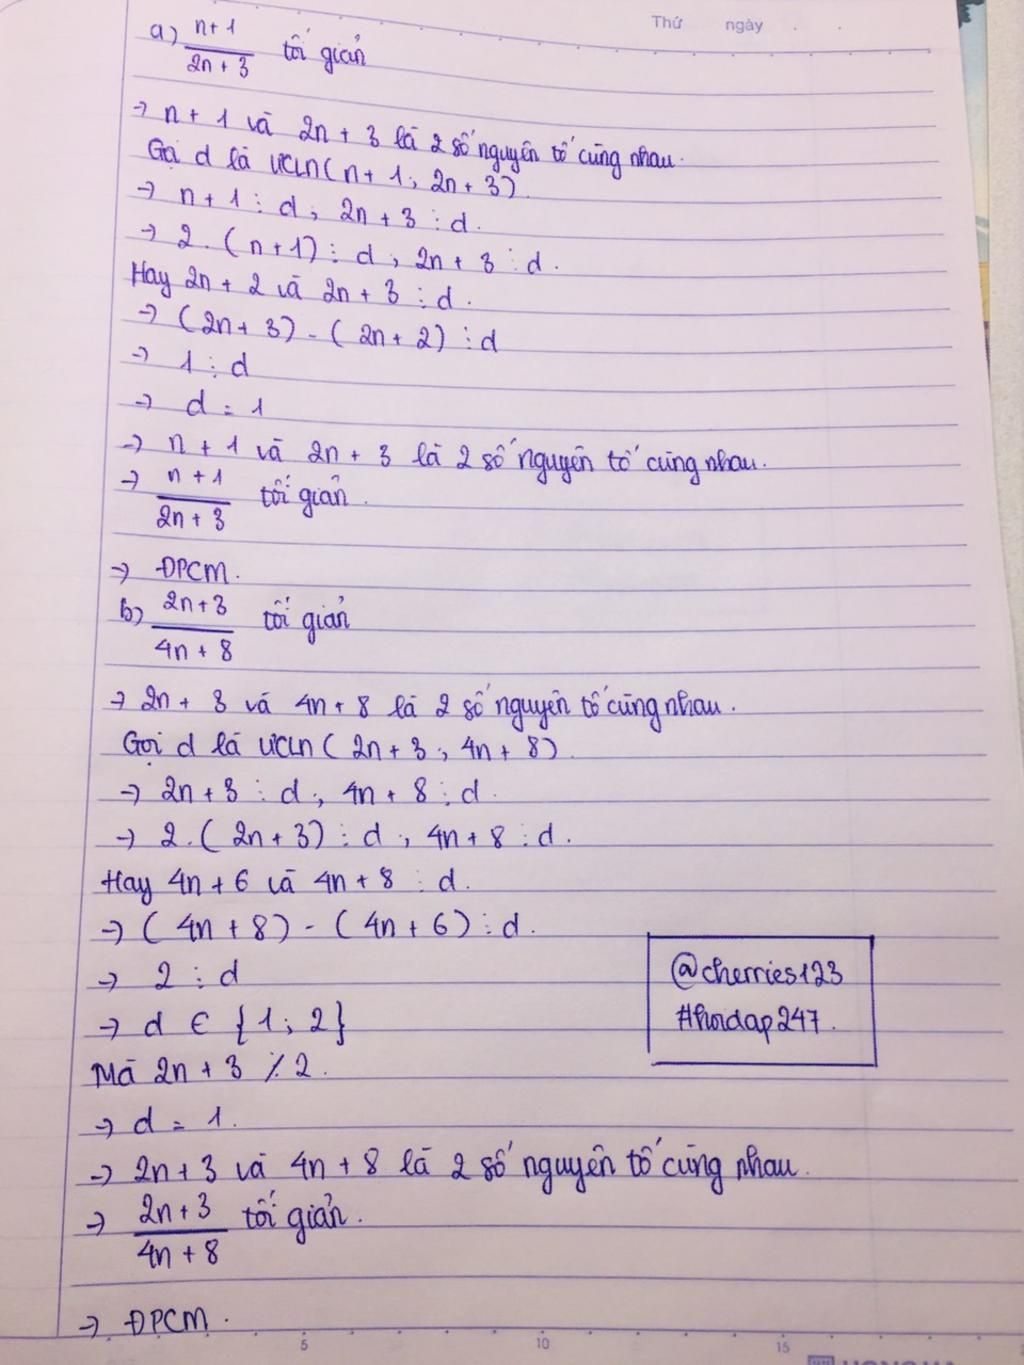 Thứ ngày
a) n+1 / 2n+3 tối giản
→ n + 1 và 2n + 3 là 2 số nguyên tố cùng nhau.
Gọi d là ƯCLN(n + 1; 2n + 3)
→ n + 1 ⋮ d; 2n + 3 ⋮ d.
→ 2.(n+1) ⋮ d, 2n + 3 ⋮ d.
Hay 2n + 2 và 2n + 3 ⋮ d.
→ (2n + 3) - (2n + 2) ⋮ d
→ 1 ⋮ d
→ d = 1
→ n + 1 và 2n + 3 là 2 số nguyên tố cùng nhau.
→ n+1 / 2n+3 tối giản.
→ ĐPCM.
b) 2n+3 / 4n+8 tối giản
→ 2n + 3 và 4n + 8 là 2 số nguyên tố cùng nhau.
Gọi d là ƯCLN(2n + 3; 4n + 8)
→ 2n + 3 ⋮ d; 4n + 8 ⋮ d.
→ 2.(2n + 3) ⋮ d, 4n + 8 ⋮ d.
Hay 4n + 6 và 4n + 8 ⋮ d.
→ (4n + 8) - (4n + 6) ⋮ d.
→ 2 ⋮ d
→ d ∈ {1; 2}
Mà 2n + 3 ⋮̸ 2.
→ d = 1.
→ 2n + 3 và 4n + 8 là 2 số nguyên tố cùng nhau.
→ 2n+3 / 4n+8 tối giản.
→ ĐPCM.
@cherries123
#hoidap247.
5 10 15